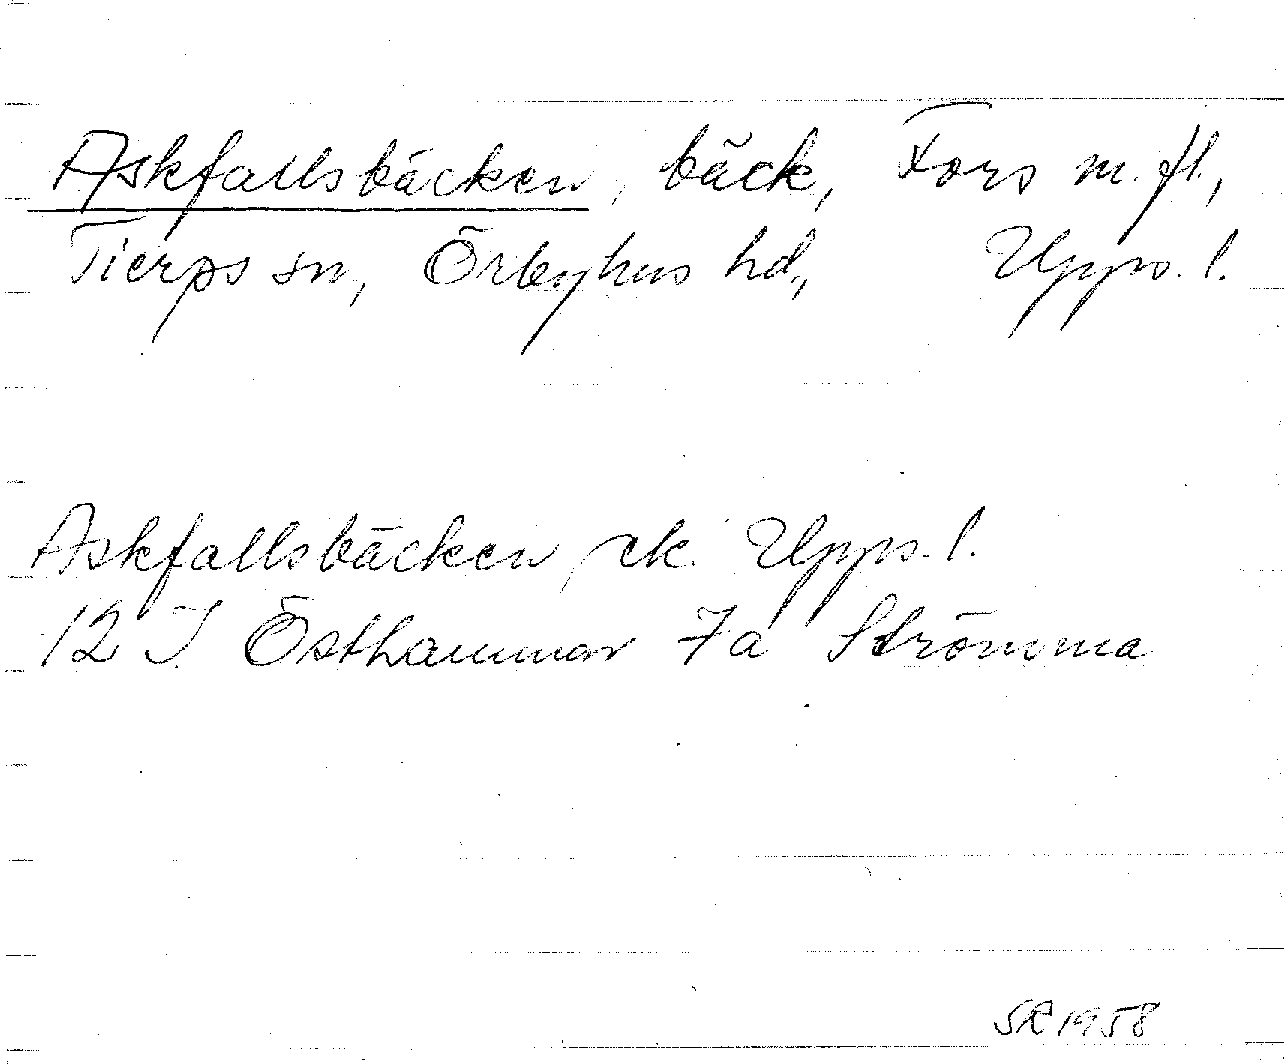 Askfallsbäcken, bäck, Fors m.fl.,
Tierps sn, Örbyhus hd, Upps. l.
Askfallsbäcken, ek. Upps. l.
12 I Östhammar 7a Strömma
SR 1958